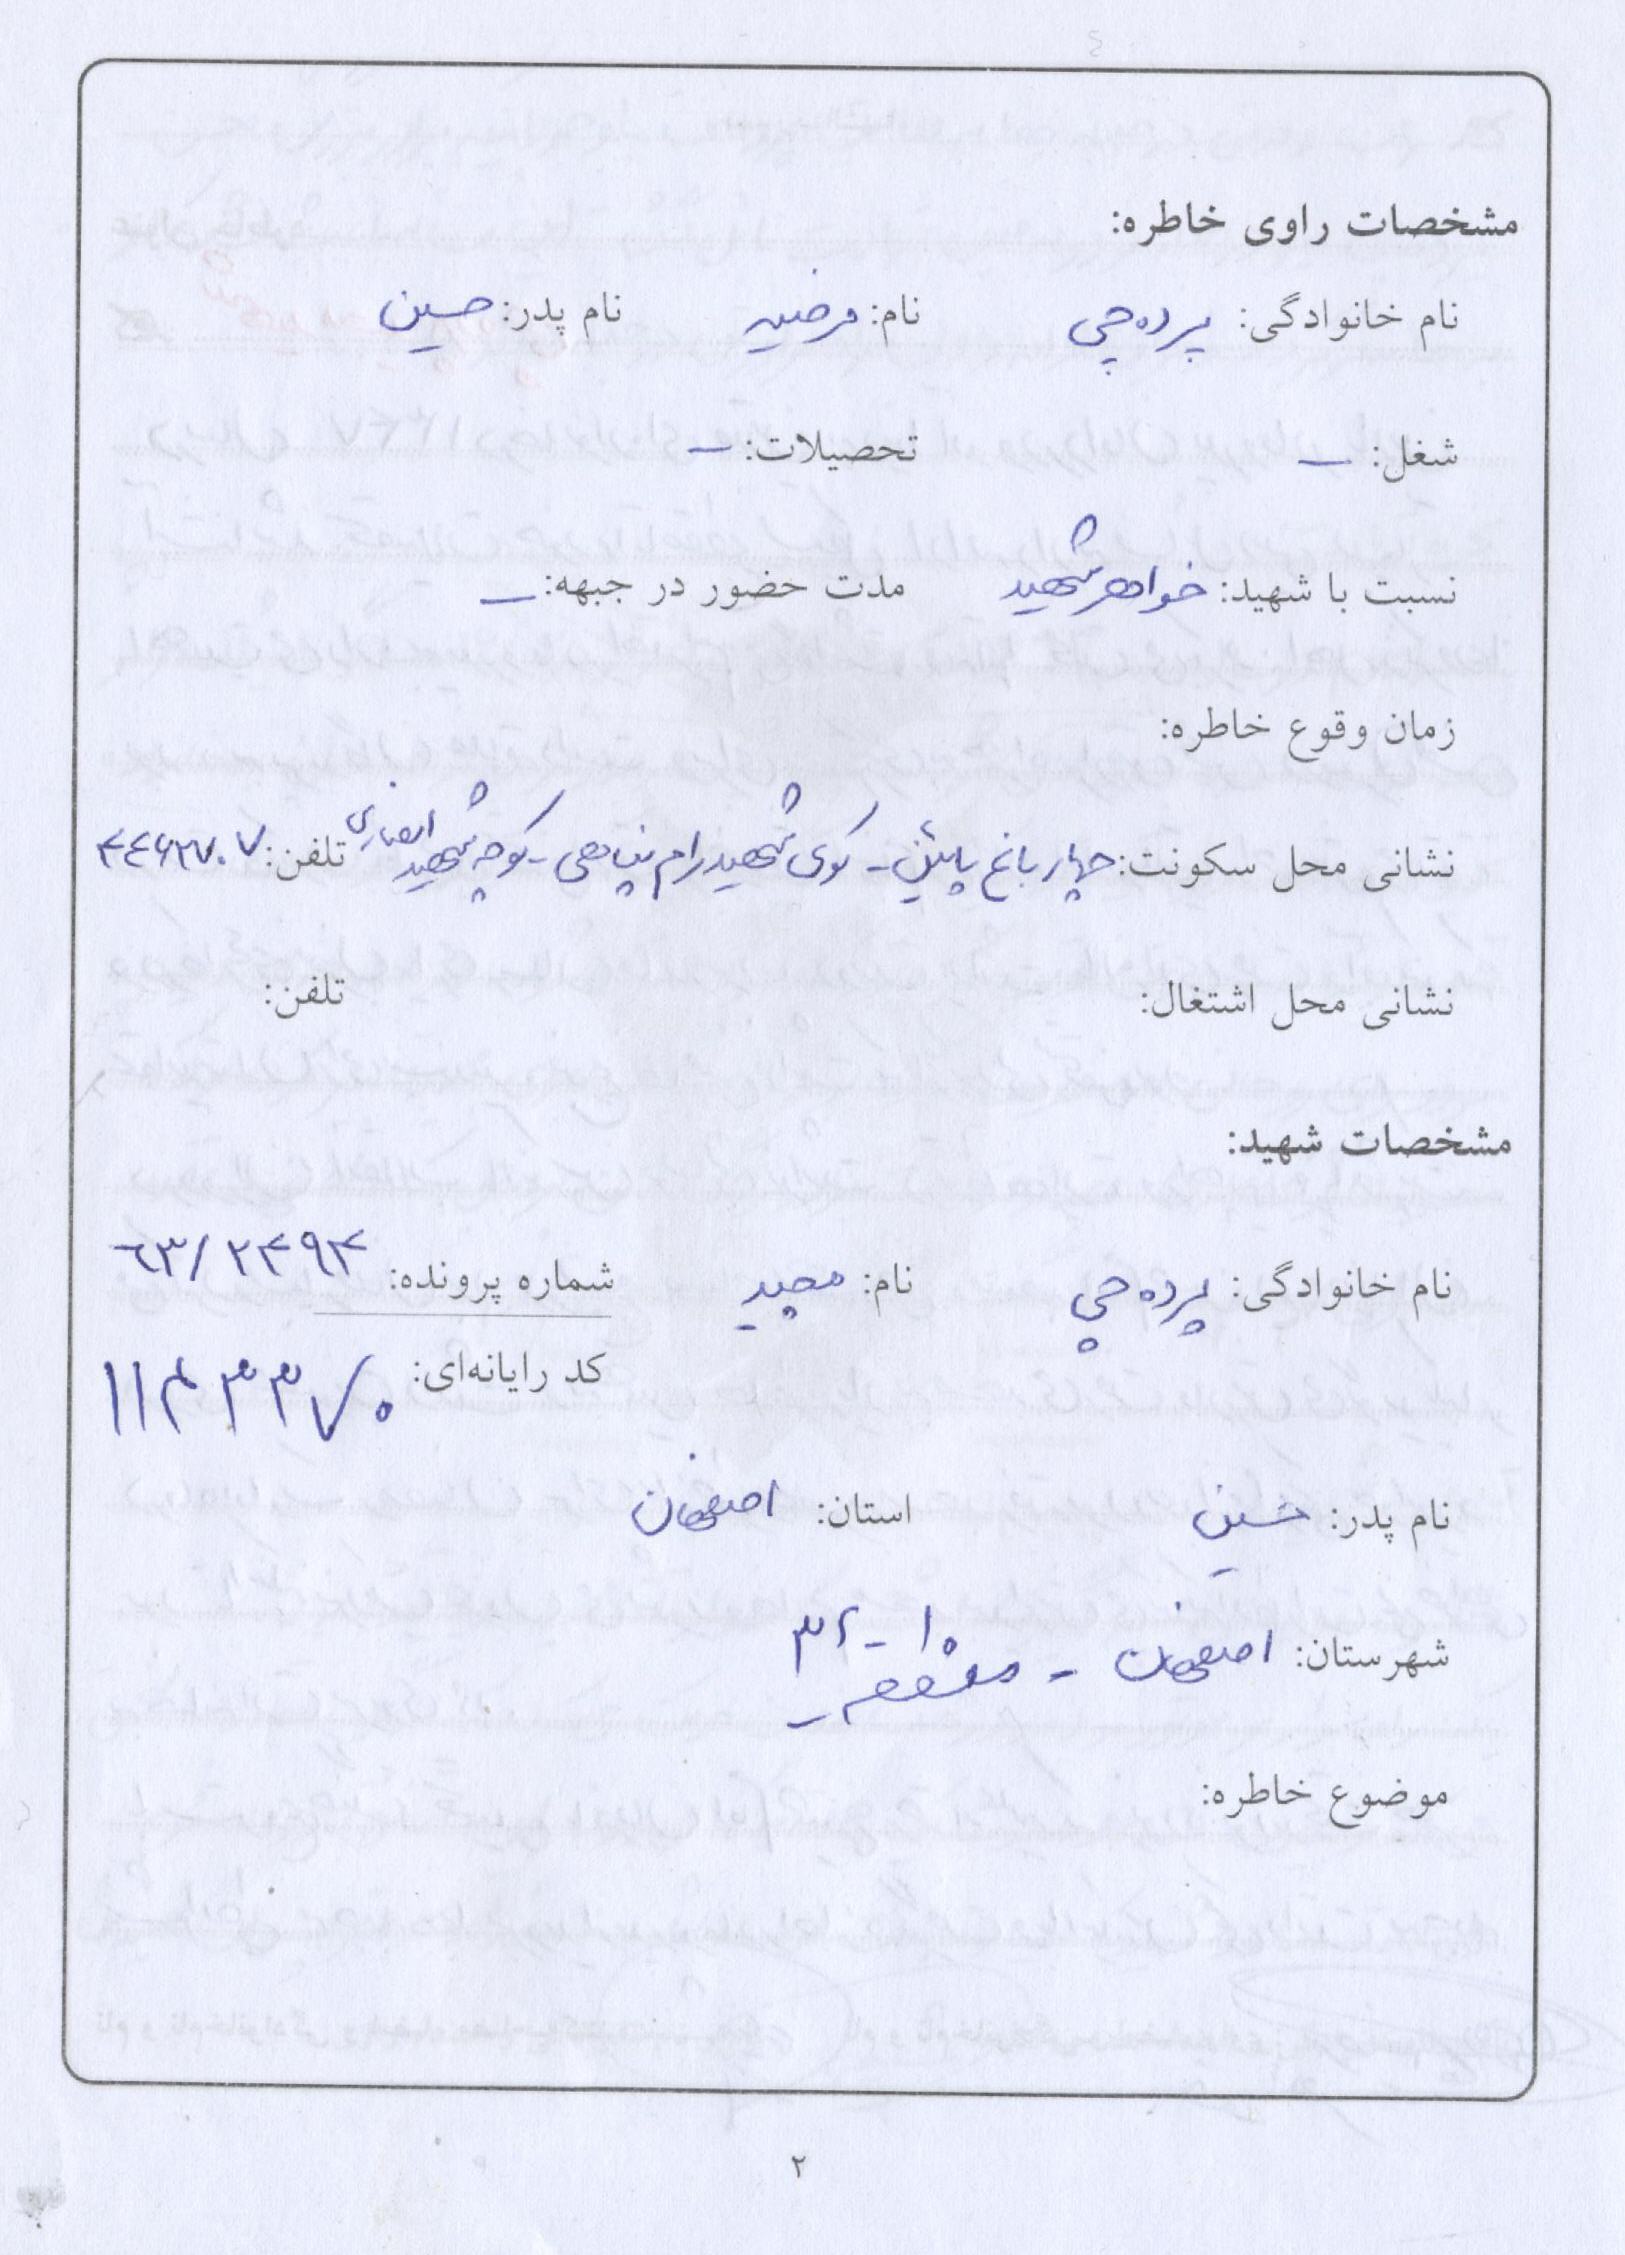 مشخصات راوی خاطره:
نام خانوادگی: پرده چی نام: مرضیه نام پدر: حسین
شغل: — تحصیلات: —
نسبت با شهید: خواهر شهید مدت حضور در جبهه: —
زمان وقوع خاطره:
نشانی محل سکونت: چهارباغ پایین - کوی شهید رام پناهی - کوچه شهید انصاری تلفن:
نشانی محل اشتغال: تلفن:
مشخصات شهید:
نام خانوادگی: پرده چی نام: مجید شماره پرونده: ۶۳/۲۴۹۴
کد رایانه‌ای: ۱۱۴۳۳۷۰
نام پدر: حسین استان: اصفهان
شهرستان: اصفهان -
موضوع خاطره:
۲